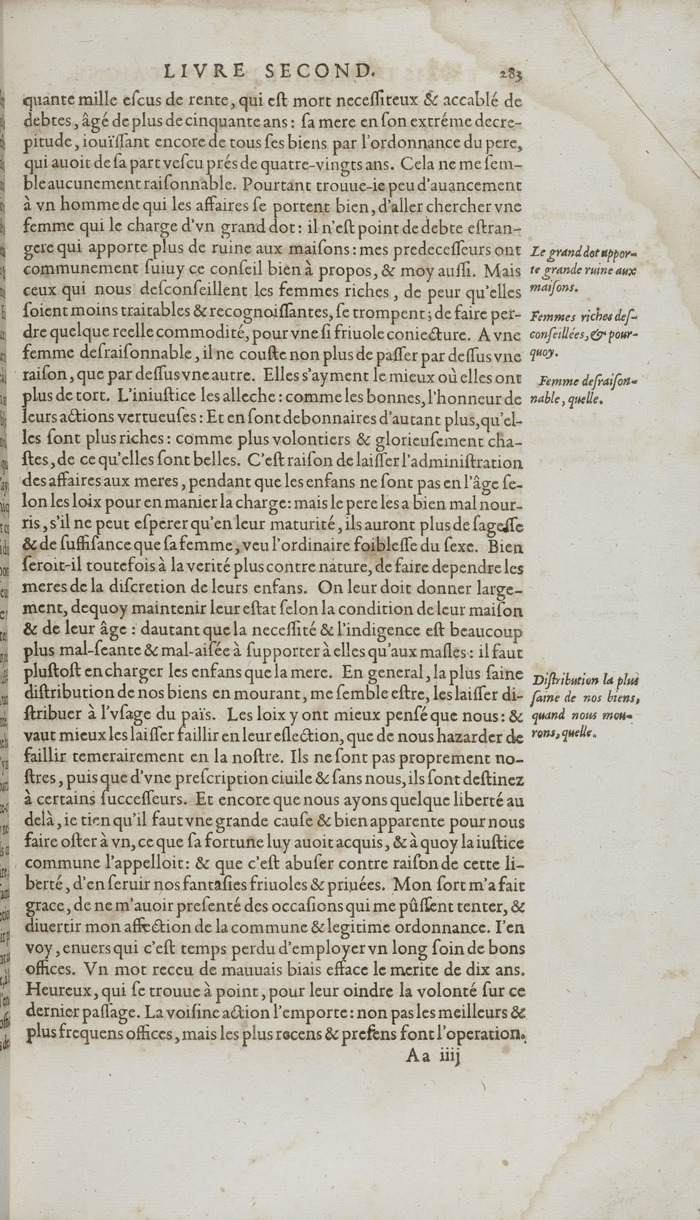 LIVRE SECOND.
283
quante mille eſcus de rente, qui eſt mort neceſſiteux & accablé de
debtes, âgé de plus de cinquante ans : ſa mere en ſon extréme decre-
pitude, iouïſſant encore de tous ſes biens par l'ordonnance du pere,
qui auoit de ſa part veſcu prés de quatre-vingts ans. Cela ne me ſem-
ble aucunement raiſonnable. Pourtant trouue-ie peu d'auancement
à vn homme de qui les affaires ſe portent bien, d'aller chercher vne
femme qui le charge d'vn grand dot : il n'eſt point de debte eſtran-
gere qui apporte plus de ruine aux maiſons : mes predeceſſeurs ont
communement ſuiuy ce conſeil bien à propos, & moy auſſi. Mais
ceux qui nous deſconſeillent les femmes riches, de peur qu'elles
ſoient moins traitables & recognoiſſantes, ſe trompent ; de faire per-
dre quelque reelle commodité, pour vne ſi friuole coniecture. A vne
femme deſraiſonnable, il ne couſte non plus de paſſer par deſſus vne
raiſon, que par deſſus vne autre. Elles s'ayment le mieux où elles ont
plus de tort. L'iniuſtice les alleche : comme les bonnes, l'honneur de
leurs actions vertueuſes : Et en ſont debonnaires d'autant plus, qu'el-
les ſont plus riches : comme plus volontiers & glorieuſement cha-
ſtes, de ce qu'elles ſont belles. C'eſt raiſon de laiſſer l'adminiſtration
des affaires aux meres, pendant que les enfans ne ſont pas en l'âge ſe-
lon les loix pour en manier la charge : mais le pere les a bien mal nour-
ris, s'il ne peut eſperer qu'en leur maturité, ils auront plus de ſageſſe
& de ſuffiſance que ſa femme, veu l'ordinaire foibleſſe du ſexe. Bien
ſeroit-il toutefois à la verité plus contre nature, de faire dependre les
meres de la diſcretion de leurs enfans. On leur doit donner large-
ment, dequoy maintenir leur eſtat ſelon la condition de leur maiſon
& de leur âge : dautant que la neceſſité & l'indigence eſt beaucoup
plus mal-ſeante & mal-aiſée à ſupporter à elles qu'aux maſles : il faut
pluſtoſt en charger les enfans que la mere. En general, la plus ſaine
diſtribution de nos biens en mourant, me ſemble eſtre, les laiſſer di-
ſtribuer à l'vſage du païs. Les loix y ont mieux penſé que nous : &
vaut mieux les laiſſer faillir en leur eſlection, que de nous hazarder de
faillir temerairement en la noſtre. Ils ne ſont pas proprement no-
ſtres, puis que d'vne preſcription ciuile & ſans nous, ils ſont deſtinez
à certains ſucceſſeurs. Et encore que nous ayons quelque liberté au
delà, ie tien qu'il faut vne grande cauſe & bien apparente pour nous
faire oſter à vn, ce que ſa fortune luy auoit acquis, & à quoy la iuſtice
commune l'appelloit : & que c'eſt abuſer contre raiſon de cette li-
berté, d'en ſeruir nos fantaſies friuoles & priuées. Mon ſort m'a fait
grace, de ne m'auoir preſenté des occaſions qui me pûſſent tenter, &
diuertir mon affection de la commune & legitime ordonnance. I'en
voy, enuers qui c'eſt temps perdu d'employer vn long ſoin de bons
offices. Vn mot receu de mauuais biais efface le merite de dix ans.
Heureux, qui ſe trouue à point, pour leur oindre la volonté ſur ce
dernier paſſage. La voiſine action l'emporte : non pas les meilleurs &
plus frequens offices, mais les plus recens & preſens font l'operation.
Aa iiij
Le grand dot appor-
te grande ruine aux
maiſons.
Femmes riches deſ-
conſeillées, & pour-
quoy.
Femme deſraiſon-
nable, quelle.
Diſtribution la plus
ſaine de nos biens,
quand nous mou-
rons, quelle.